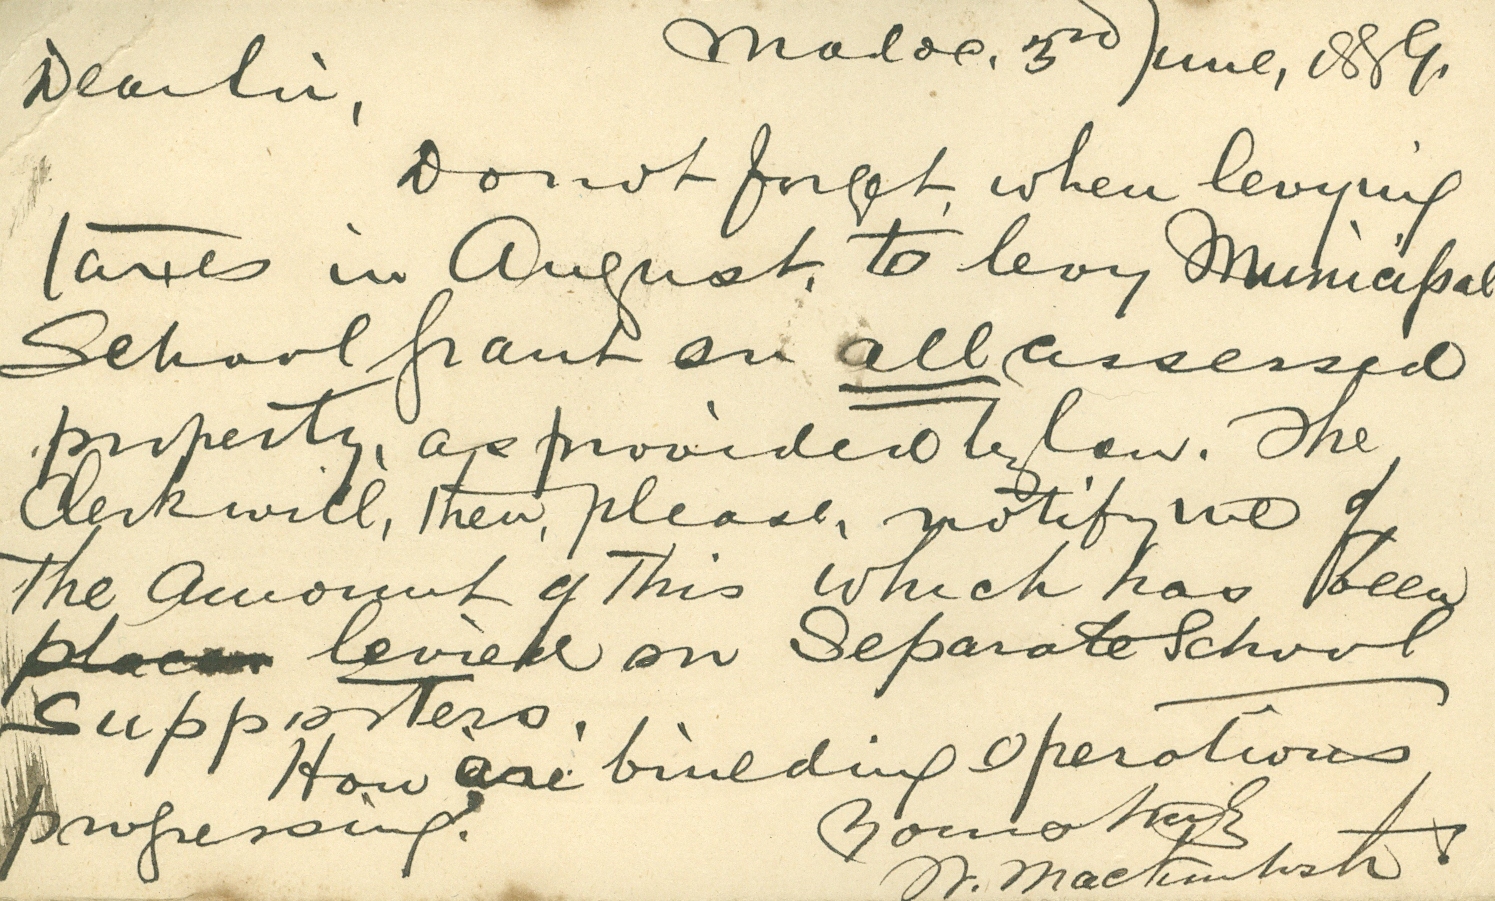 Madoc, 3rd June, 1889.
Dear Sir,
Do not forget, when levying
taxes in August, to levy Municipal
School Grant on all assessed
property, as provided by law. The
Clerk will, then, please, notify me of
the amount of this which has been
placed levied on Separate School
Supporters.
How are building operations
progressing?
Yours truly
W. Mackintosh